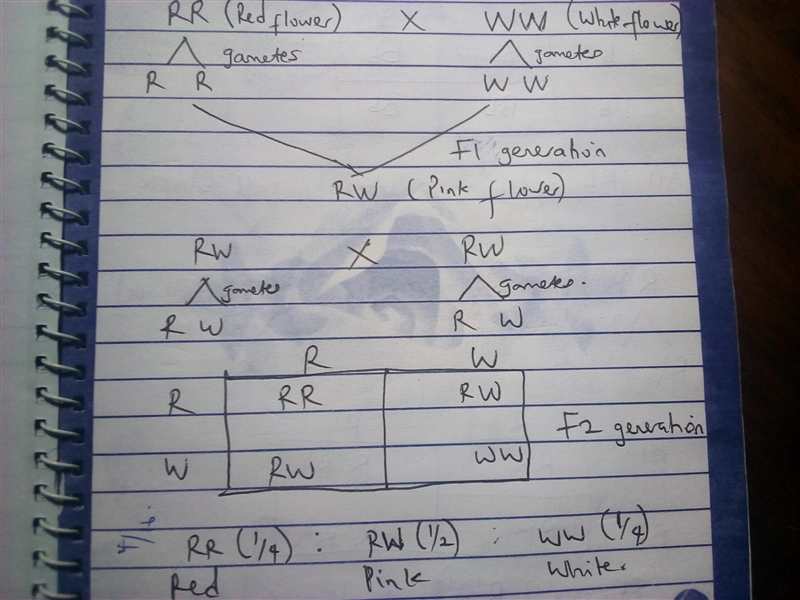 RR (Red flower) X WW (White flower)
gametes gametes
R R W W
F1 generation
RW (Pink flower)
RW X RW
gametes gametes.
R W R W
R W
R RR RW
F2 generation
W RW WW
RR (1/4) : RW (1/2) : WW (1/4)
Red Pink White.